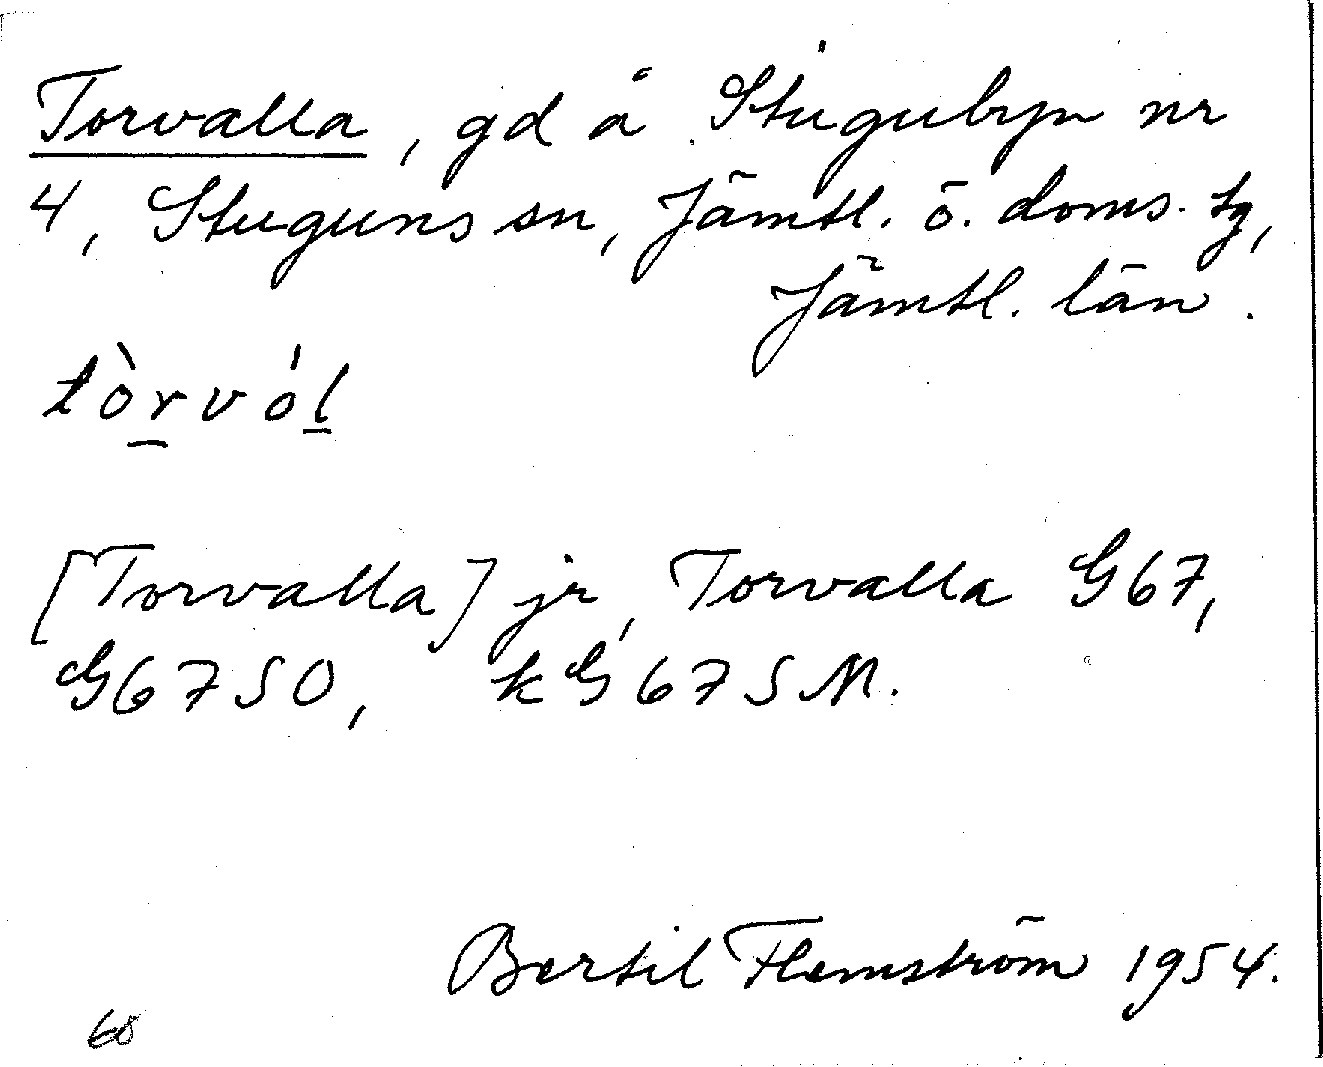 Torvalla, gd å Stugubyn nr
4, Stuguns sn, Jämtl. ö. doms. tg,
Jämtl. län.
tòrvól
[Torvalla] jr, Torvalla G67,
G67SO, kG67SM.
Bertil Flemström 1954.
68